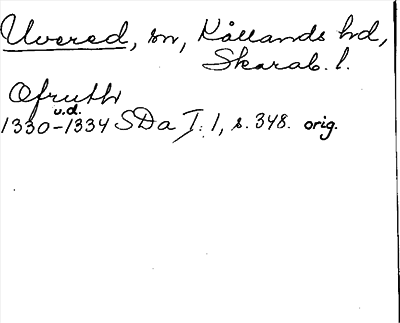 Uvered, sn, Kållands hd,
Skarab. l.
Ofruthr
u.d.
1330-1334 SDa I: 1, s. 348. orig.